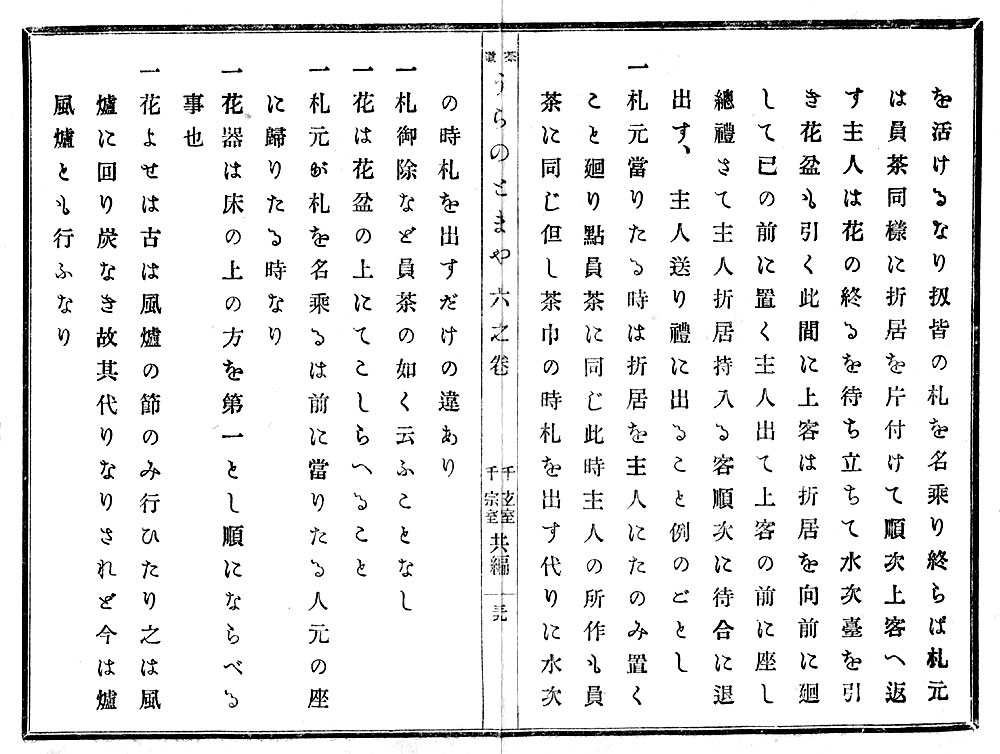 を活けるなり扨皆の札を名乘り終らば札元
は員茶同樣に折居を片付けて順次上客へ返
す主人は花の終るを待ち立ちて水次臺を引
き花盆も引く此間に上客は折居を向前に廻
して已の前に置く主人出て上客の前に座し
總禮さて主人折居持入る客順次に待合に退
出す、主人送り禮に出ること例のごとし
一札元當りたる時は折居を主人にたのみ置く
こと廻り點員茶に同じ此時主人の所作も員
茶に同じ但し茶巾の時札を出す代りに水次
茶道
うらのとまや六之卷
千玄室
千宗室
共編
三九
の時札を出すだけの違あり
一札御除など員茶の如く云ふことなし
一花は花盆の上にてこしらへること
一札元が札を名乘るは前に當りたる人元の座
に歸りたる時なり
一花器は床の上の方を第一とし順にならべる
事也
一花よせは古は風爐の節のみ行ひたり之は風
爐に回り炭なき故其代りなりされど今は爐
風爐とも行ふなり